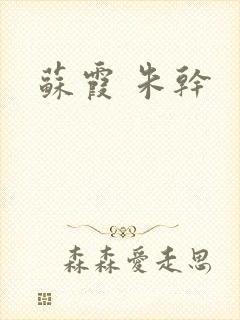 蘇霞 朱幹
森森愛走思